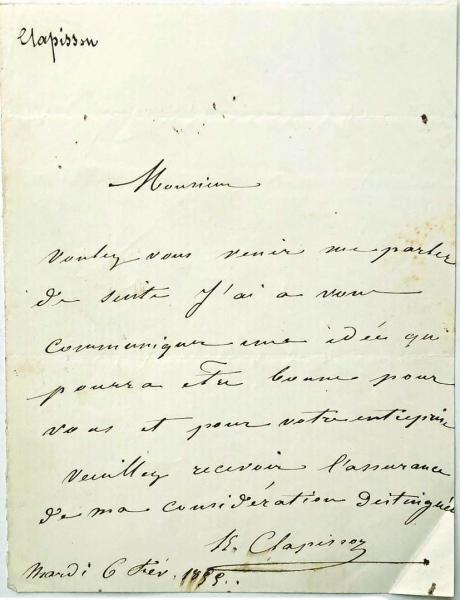 Clapisson
Monsieur
voulez vous venir me parler
de suite J'ai a vous
communiquer une idée qui
pourra être bonne pour
vous et pour votre entreprise
veuillez recevoir l'assurance
de ma considération distinguée
Clapisson
Mardi 6 Fév.